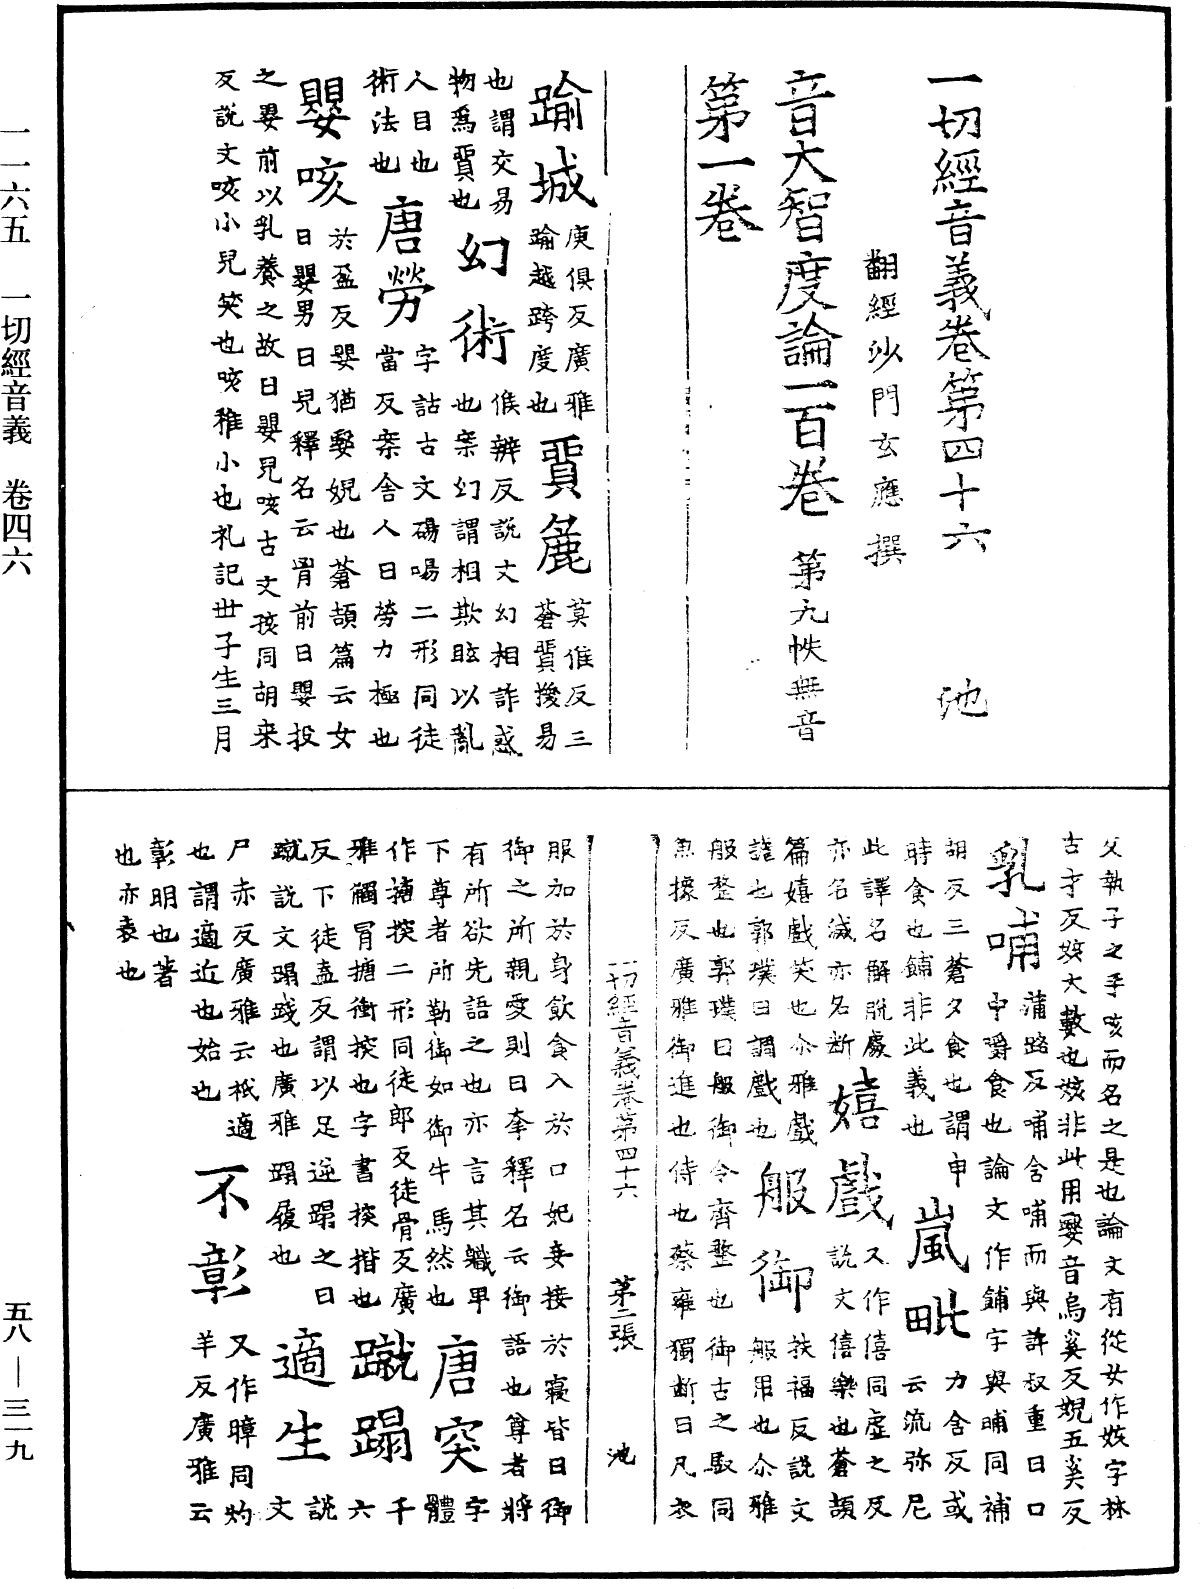 一切經音義卷第四十六　池
翻經沙門玄應撰
音大智度論一百卷　第九帙無音
第一卷
踰城 庾俱反廣雅踰越跨度也 貿麁 莫候反三蒼貿換易
也謂交易物爲貿也 幻術 侯辨反說文幻相詐惑也案幻謂相欺眩以亂
人目也術法也 唐勞 字詁古文碭啺二形同徒當反案舍人曰勞力極也
嬰咳 於盈反嬰猶嫛婗也蒼頡篇云女曰嬰男曰兒釋名云胷前曰嬰投
之嬰前以乳養之故曰嬰兒咳古文孩同胡來
反說文咳小兒笑也咳稚小也礼記世子生三月
父執子之手咳而名之是也論文有從女作姟字林
古才反姟大數也姟非此用嫛音烏奚反婗五奚反
乳哺 蒲路反哺含哺而與許叔重曰口中嚼食也論文作餔字與晡同補
胡反三蒼夕食也謂申時食也餔非此義也 嵐毗 力含反或云流弥尼
此譯名解脫處亦名滅亦名斷 嬉戲 又作僖同虛之反說文僖樂也蒼頡
篇嬉戲笑也尒雅戲謔也郭璞曰調戲也 般御 扶福反說文般用也尒雅
般整也郭璞曰般御令齊整也御古之馭同
魚據反廣雅御進也侍也蔡雍獨斷曰凡衣
一切經音義卷第四十六　第二張　池
服加於身飲食入於口妃妾接於寢皆曰御
御之所親愛則曰幸釋名云御語也尊者將
有所欲先語之也亦言其職卑下尊者所勒御如御牛馬然也 唐突 字體
作搪揬二形同徒郎反徒骨反廣雅觸冒搪衝揬也字書揬揩也 蹴蹋 千六
反下徒盍反謂以足逆蹋之曰蹴說文蹋踐也廣雅蹋履也 適生 說文
尸赤反廣雅云祇適也謂適近也始也 不彰 又作暲同灼羊反廣雅云
彰明也著
也亦表也
一一六五　一切經音義　卷四六
五八—三一九